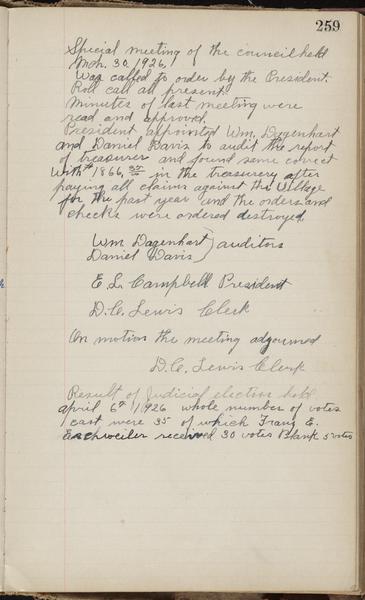 259
Special meeting of the council held
Mch. 30, 1926,
Was called to order by the President.
Roll call all present.
Minutes of last meeting were
read and approved.
President appointed Wm. Dagenhart
and Daniel Davis to audit the report
of treasurer and found same correct
with $1866, in the treasurery after
paying all claims against the Village
for the past year and the orders and
checks were ordered destroyed.
Wm Dagenhart } auditors
Daniel Davis
E. L. Campbell President
D. C. Lewis Clerk
On motion the meeting adjourned
D. C. Lewis Clerk
Result of Judicial election held
april 6th 1926 whole number of votes
cast were 35 of which Franz E.
Eschweiler received 30 votes Blank 5 votes